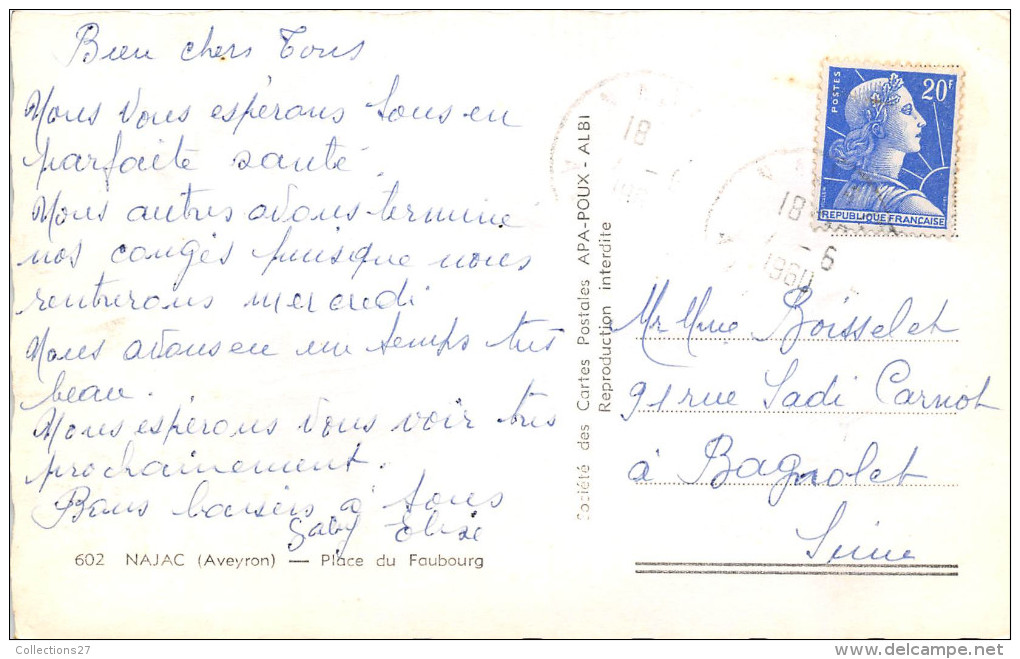 Bien chers Tous
Nous vous espérons tous en
parfaite santé.
Nous autres avons terminé
nos congés puisque nous
rentrerons mercredi
Nous avons eu un temps très
beau.
Nous espérons vous voir très
prochainement.
Bons baisers à tous
Gaby Elise
602 NAJAC (Aveyron) — Place du Faubourg
Société des Cartes Postales APA-POUX - ALBI
Reproduction interdite
18
POSTES
20F
REPUBLIQUE FRANÇAISE
18
-6
1960
Mr Mme Boisselet
91 rue Sadi Carnot
à Bagnolet
Seine
Collections27
www.delcampe.net